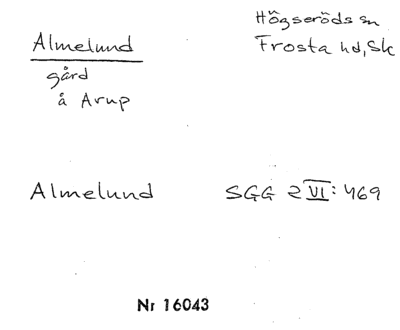 Almelund
gård
å Arup
Högseröds sn
Frosta hd, Sk
Almelund SGG 2 VI: 469
Nr 16043